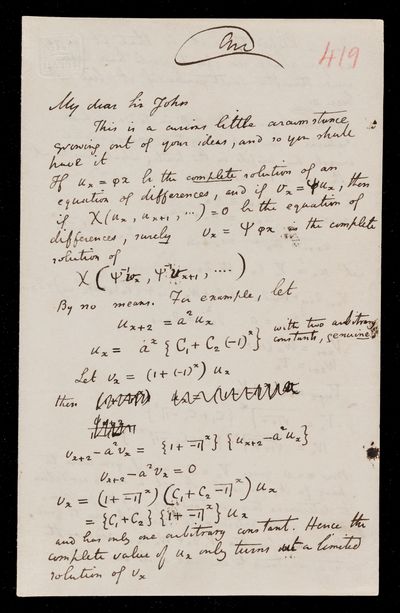 Ans
419
My dear Sir John
This is a curious little circumstance
growing out of your ideas, and so you shall
have it
If uₓ = φx be the complete solution of an
equation of differences, and if vₓ = ψuₓ, then
if χ(uₓ, uₓ₊₁, ...) = 0 be the equation of
differences, surely vₓ = ψφx is the complete
solution of
χ(ψ⁻¹vₓ, ψ⁻¹vₓ₊₁, ....)
By no means. For example, let
uₓ₊₂ = a²uₓ
uₓ = aˣ {C₁ + C₂ (-1)ˣ} with two arbitrary
constants, genuine
Let vₓ = (1 + (-1)ˣ) uₓ
then
vₓ₊₂ - a²vₓ = {1 + -1|ˣ} {uₓ₊₂ - a²uₓ}
vₓ₊₂ - a²vₓ = 0
vₓ = (1 + -1|ˣ) (C₁ + C₂ -1|ˣ) uₓ
= {C₁ + C₂} {1 + -1|ˣ} uₓ
and has only one arbitrary constant. Hence the
complete value of uₓ only turns out a limited
solution of vₓ